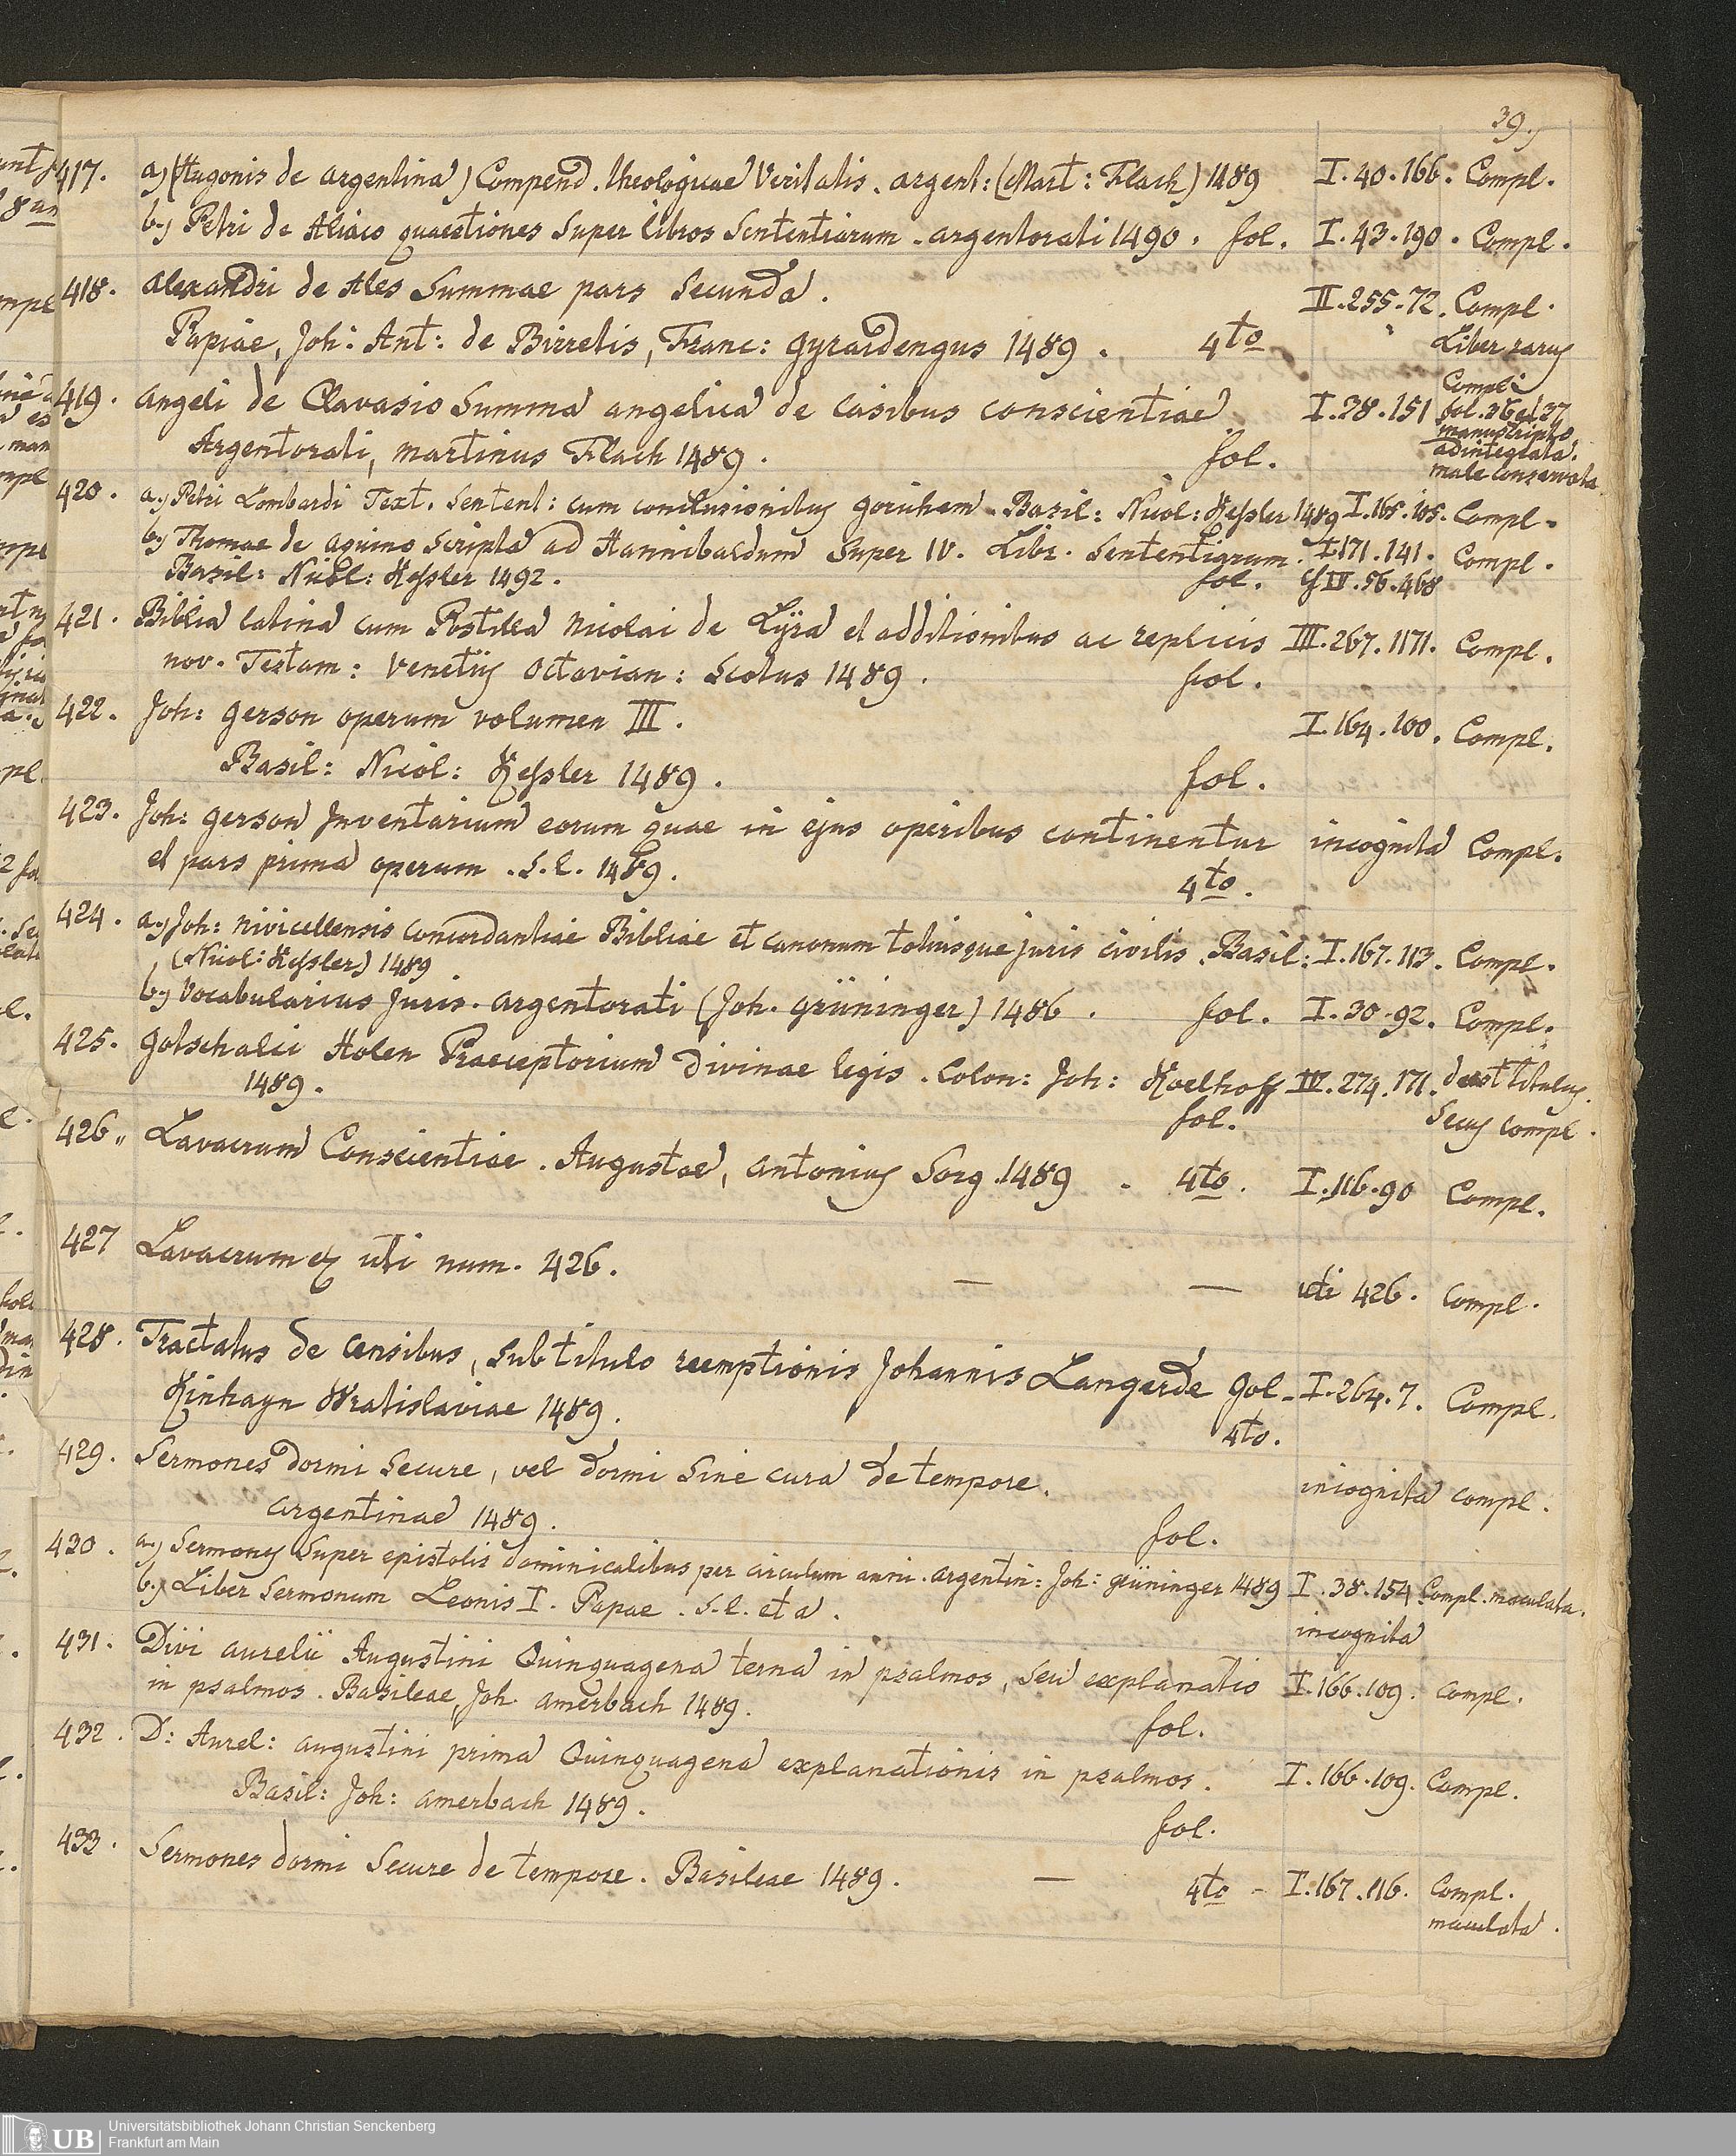 39.
417. a) (Hugonis de argentina) Compend. theologicae Veritatis. argent: (Mart: Flach) 1489 I. 40. 166. Compl.
b.) Petri de Aliaco quaestiones Super libros Sententiarum. argentorati 1490. fol. I. 43. 190. Compl.
418. alexandri de Ales Summae pars Secunda. II. 255. 72. Compl.
Papiae, Joh: Ant: de Birretis, Franc: gyrardengus 1489. 4to Liber rarus
419. angeli de Clavasio Summa angelica de Casibus conscientiae I. 38. 151 Compl:
fol. 36 et 37
manuscripto
adintegrata.
male conservata
Argentorati, martinus Flach 1489. fol.
420. a.) Petri Lombardi Text. Sentent: cum conclusionibus gorichem. Basil: Nicol: Kessler 1489 I. 165. 105. Compl.
b.) Thomae de aquino Scripta ad Hannibaldum Super IV. Libr. Sententiarum. I. 171. 141. Compl.
Basil: Nicol: Kessler 1492. fol. cf IV. 56. 468
421. Biblia latina cum Postilla Nicolai de Lÿra et additionibus ac replicis III. 267. 1171. Compl.
nov. Testam: Venetiis Octavian: Scotus 1489. fol.
422. Joh: gerson operum volumen III. I. 164. 100. Compl.
Basil: Nicol: Kessler 1489. fol.
423. Joh: gerson Inventarium eorum quae in ejus operibus continentur incognita Compl.
et pars prima operum. S. l. 1489. 4to.
424. a.) Joh: nivicellensis Concordantiae Bibliae et canonum totiusque juris civilis. Basil: I. 167. 113. Compl.
(Nicol: Kessler) 1489
b.) Vocabularius Juris. argentorati (Joh. grüninger) 1486. fol. I. 30. 92. Compl.
425. gotschalci Holen Praeceptorium Divinae legis. Colon: Joh: Koelhoff IV. 274. 171. deest titulus.
1489. fol. Secus compl.
426. Lavacrum Conscientiae. Augustae, antonius Sorg. 1489. 4to. I. 116. 90 Compl.
427 Lavacrum &c uti num. 426. — — uti 426. Compl.
428. Tractatus de Censibus, Sub titulo reemptionis Johannis Langerde gol- I. 264. 7. Compl.
Kinhayn Wratislaviae 1489. 4to.
429. Sermones dormi Secure, vel dormi Sine cura de tempore. incognita compl.
argentinae 1489. fol.
430. a.) Sermones Super epistolis dominicalibus per circulum anni. argentin: Joh: grüninger 1489 I. 38. 154 Compl. maculata.
b.) Liber Sermonum Leonis I. Papae. S. l. et a. incognita
431. Divi aurelii Augustini Quinquagena terna in psalmos, Seu explanatio I. 166. 109. compl.
in psalmos. Basileae, Joh. amerbach 1489. fol.
432. D: Aurel: augustini prima Quinquagena explanationis in psalmos. I. 166. 109. Compl.
Basil: Joh: amerbach 1489. fol.
433. Sermones dormi Secure de tempore. Basileae 1489. — 4to - I. 167. 116. Compl.
maculata.
UB Universitätsbibliothek Johann Christian Senckenberg
Frankfurt am Main